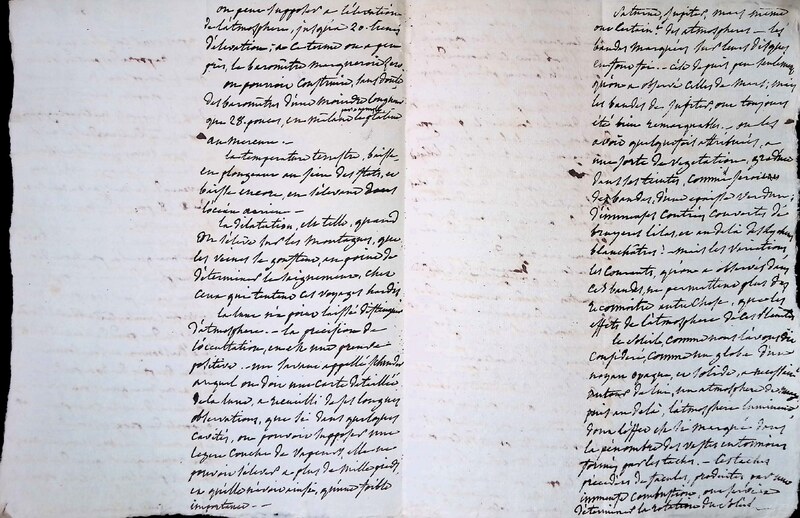 on peut supposer a l'élévation
de l'atmosphere, jusqu'à 20. lieues
d'élévation; a ce terme ou a peu
près, le barometre marqueroit zero
on pourroit construire, sans doute
des barometres d'une moindre longueur
que 28. pouces, en mêlant le platine
au mercure. —
la temperature terrestre, baisse,
en plongeant au sein des flots, et
baisse encore, en s'élevant dans
l'océan aerien —
la dilatation, est telle, quand
on s'élève sur les montagnes, que
les veines se gonflent, au point de
déterminer le saignement, chez
ceux qui tentent ces voyages hardis
la lune n'a point laissé distinguer
d'atmosphere. — la precision de
l'occultation, en est une preuve
positive. — un savant appellé
auquel on doit une carte détaillée
de la lune, a recueilli de ses longues
observations, que si dans quelques
cavités, on pouvoit supposer une
legere couche de vapeurs, elle ne
pouvoit s'élever a plus de mille pieds,
et qu'elle n'avoit ainsi, qu'une foible
importance —
Saturne, Jupiter, mars même
ont certainement des atmospheres — les
bandes marquées sur leurs disques
en font foi. — c'est depuis peu seulement
qu'on a observé celles de mars; mais
les bandes de Jupiter, ont toujours
été bien remarquables. — on les
avoit quelquefois attribuées, a
une sorte de vegetation, graduée
dans ses teintes, comme seroient
des bandes, d'une epaisse verdure;
d'immenses contrées couvertes de
bruyeres lilas, et au delà des
blanchâtres! — mais les variations,
les courants, qu'on a observés dans
ces bandes, ne permettent plus d'y
reconnoitre autre chose, que les
effets de l'atmosphere de ces planetes
le Soleil, comme nous l'avons dit
consideré, comme un globe d'un
noyau opaque, et solide, a necessairement
autour de lui, un atmosphere de nuages
puis au delà, l'atmosphere lumineuse
dont l'effet est le marqué dans
la pénombre des vastes entonnoirs
formés par les taches. — les taches
précédées de facules, produites par une
immense combustion, ont servi a
déterminer la rotation du Soleil —